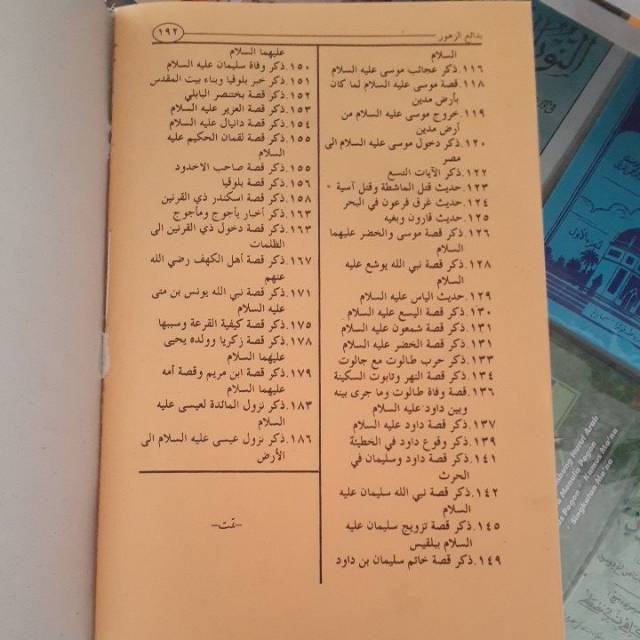 بدائع الزهور
١٩٢
السلام
١١٦.ذكر عجائب موسى عليه السلام
١١٨.قصة موسى عليه السلام لما كان
بأرض مدين
١١٩.خروج موسى عليه السلام من
أرض مدين
١٢٠.ذكر دخول موسى عليه السلام الى
مصر
١٢٢.ذكر الآيات التسع
١٢٣.حديث قتل الماشطة وقتل آسية
١٢٤.حديث غرق فرعون في البحر
١٢٥.حديث قارون وبغيه
١٢٦.ذكر قصة موسى والخضر عليهما
السلام
١٢٨.ذكر قصة نبي الله يوشع عليه
السلام
١٢٩.حديث الياس عليه السلام
١٣٠.ذكر قصة اليسع عليه السلام
١٣١.ذكر قصة شمعون عليه السلام
١٣١.ذكر قصة الخضر عليه السلام
١٣٣.ذكر حرب طالوت مع جالوت
١٣٤.ذكر قصة النهر وتابوت السكينة
١٣٦.قصة وفاة طالوت وما جرى بينه
وبين داود عليه السلام
١٣٧.ذكر قصة داود عليه السلام
١٣٩.ذكر وقوع داود في الخطيئة
١٤١.ذكر قصة داود وسليمان في
الحرث
١٤٢.ذكر قصة نبي الله سليمان عليه
السلام
١٤٥.ذكر قصة تزويج سليمان عليه
السلام ببلقيس
١٤٩.ذكر قصة خاتم سليمان بن داود
عليهما السلام
١٥٠.ذكر وفاة سليمان عليه السلام
١٥١.ذكر خبر بلوقيا وبناء بيت المقدس
١٥٢.ذكر قصة بختنصر البابلي
١٥٣.ذكر قصة العزير عليه السلام
١٥٤.ذكر قصة دانيال عليه السلام
١٥٥.ذكر قصة لقمان الحكيم عليه
السلام
١٥٥.ذكر قصة صاحب الاخدود
١٥٦.ذكر قصة بلوقيا
١٥٨.ذكر قصة اسكندر ذي القرنين
١٦٣.ذكر أخبار يأجوج ومأجوج
١٦٣.ذكر قصة دخول ذي القرنين الى
الظلمات
١٦٧.ذكر قصة أهل الكهف رضي الله
عنهم
١٧١.ذكر قصة نبي الله يونس بن متى
عليه السلام
١٧٥.ذكر قصة كيفية القرعة وسببها
١٧٨.ذكر قصة زكريا وولده يحيى
عليهما السلام
١٧٩.ذكر قصة ابن مريم وقصة أمه
عليهما السلام
١٨٣.ذكر نزول المائدة لعيسى عليه
السلام
١٨٦.ذكر نزول عيسى عليه السلام الى
الأرض
–تمت–